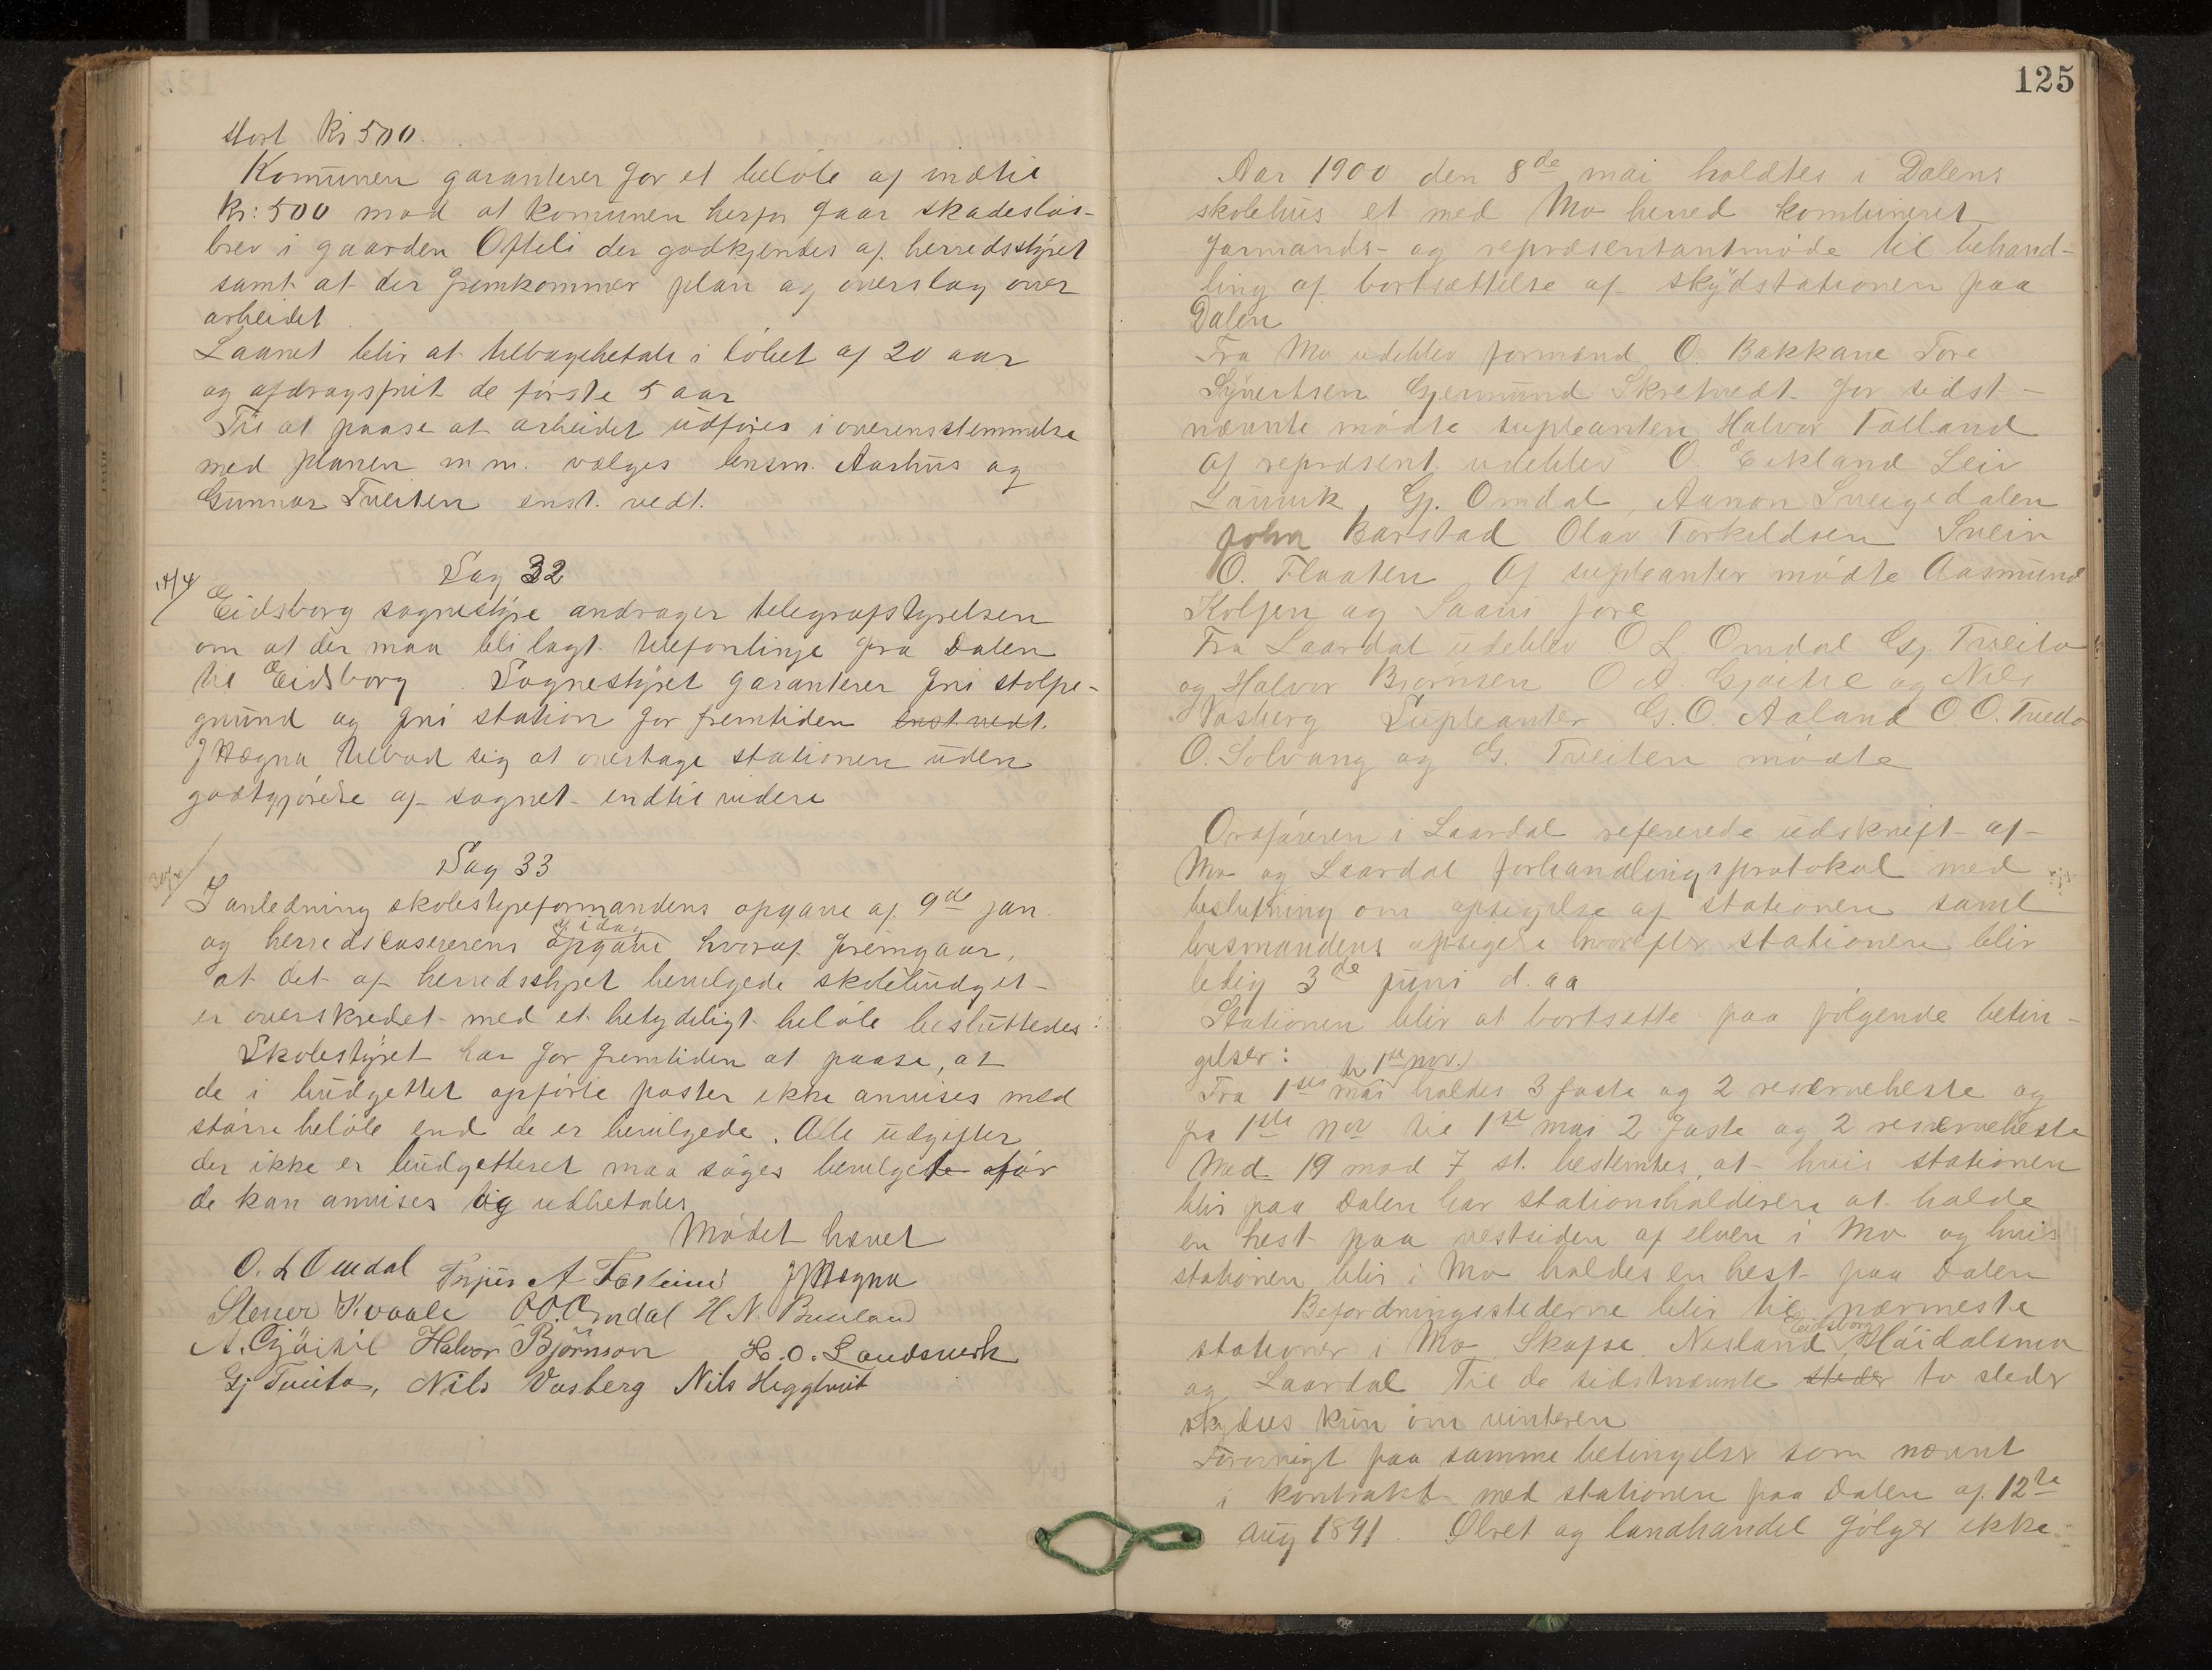 stort Kr 500.
Komunen garanterer for et belöb af indtil
Kr: 500 mod at komunen herfor faar skadeslös-
brev i gaarden Ofteli der godkjendes af herredsstyret
samt at der fremkommer plan og overslag over
arbeidet
Laanet blir at tilbagebetale i löbet af 20 aar
og afdragsfrit de förste 5 aar
Til at paase at arbeidet udföres i overensstemmelse
med planen m m. vælges lensm. Aarhus og
Gunnar Tveiten enst. vedt.
Sag 32
Eidsborg sognestyre andrager telegrafstyrelsen
om at der maa bli lagt telefonlinje fra Dalen
til Eidsborg . Sognestyret garanterer fri stolpe-
grund og fri station for fremtiden enst vedt.
J Mægna tilbød sig at overtage stationen uden
godtgjörelse af sognet indtil videre
Sag 33
I anledning skolestyreformandens opgave af 9de jan
og herredskasererens opgave af idag hvoraf fremgaar,
at det af herredsstyret bevilgede skolebudget
er overskredet med et betydeligt belöb besluttedes:
Skolestyret har for fremtiden at paase, at
de i budgettet opförte poster ikke anvises med
större belöb end de er bevilgede. Alle udgifter
der ikke er budgetteret maa söges bevilgede för
de kan anvises og udbetales
Mödet hævet
O. L Omdal A J Mægna
Stener Kvaale O.O. Omdal H. N. Bueland
A. Gjöitil Halvor Björnson H. O. Landsverk
Gj Tveito, Nils Vasberg Nils Heggtveit
125
Aar 1900 den 8de mai holdtes i Dalens
skolehus et med Mo herred kombineret
formands- og repræsentantmöde til behand-
ling af bortsættelse af skydsstationen paa
Dalen
Fra Mo udeblev formænd O. Bakkane Tore
Syvertsen Gjermund Skretvedt for sidst-
nævnte mödte supleanten Halvor Tolland
Af repræsent. udeblev O. Eikland Leiv
Gj. Omdal, Aanon Sveigedalen
John Barstad Olav Torkildsen Svein
O. Flaaten Af supleanter mödte Aasmund
Kolsen og Jore
Fra Laardal udeblev O L. Omdal Gj. Tveito
og Halvor Bjørnsen O A. Gjöitil og Nils
Vasberg Supleanter G. O. Aaland O. O. Tvedo
O. Solvang og G. Tveiten mödte
Ordföreren i Laardal refererede udskrift af
Mo og Laardal forhandlingsprotokol med
beslutning om opsigelse af stationen samt
lensmandens opsigelse hvorefter stationen blir
ledig 3de juni d. aa
Stationen blir at bortsette paa fölgende betin-
gelser:
Fra 1ste mai til 1ste nov. holdes 3 faste og 2 reserveheste og
fra 1ste nov til 1ste mai 2 faste og 2 reserveheste
Med 19 mod 7 st. bestemtes, at hvis stationen
blir paa Dalen har stationsholderen at holde
en hest paa vestsiden af elven i Mo og hvis
stationen blir i Mo holdes en hest paa Dalen
Befordringsstederne blir til nærmeste
stationer i Mo Skafse Nesland, Eidsborg Höidalsmo
og Laardal Til de sidstnævnte steder to steder
skydses kun om vinteren
Forövrigt paa samme betingelser som nævnt
i kontrakt med stationen paa Dalen af 12te
aug 1891. Ölret og landhandel fölger ikke